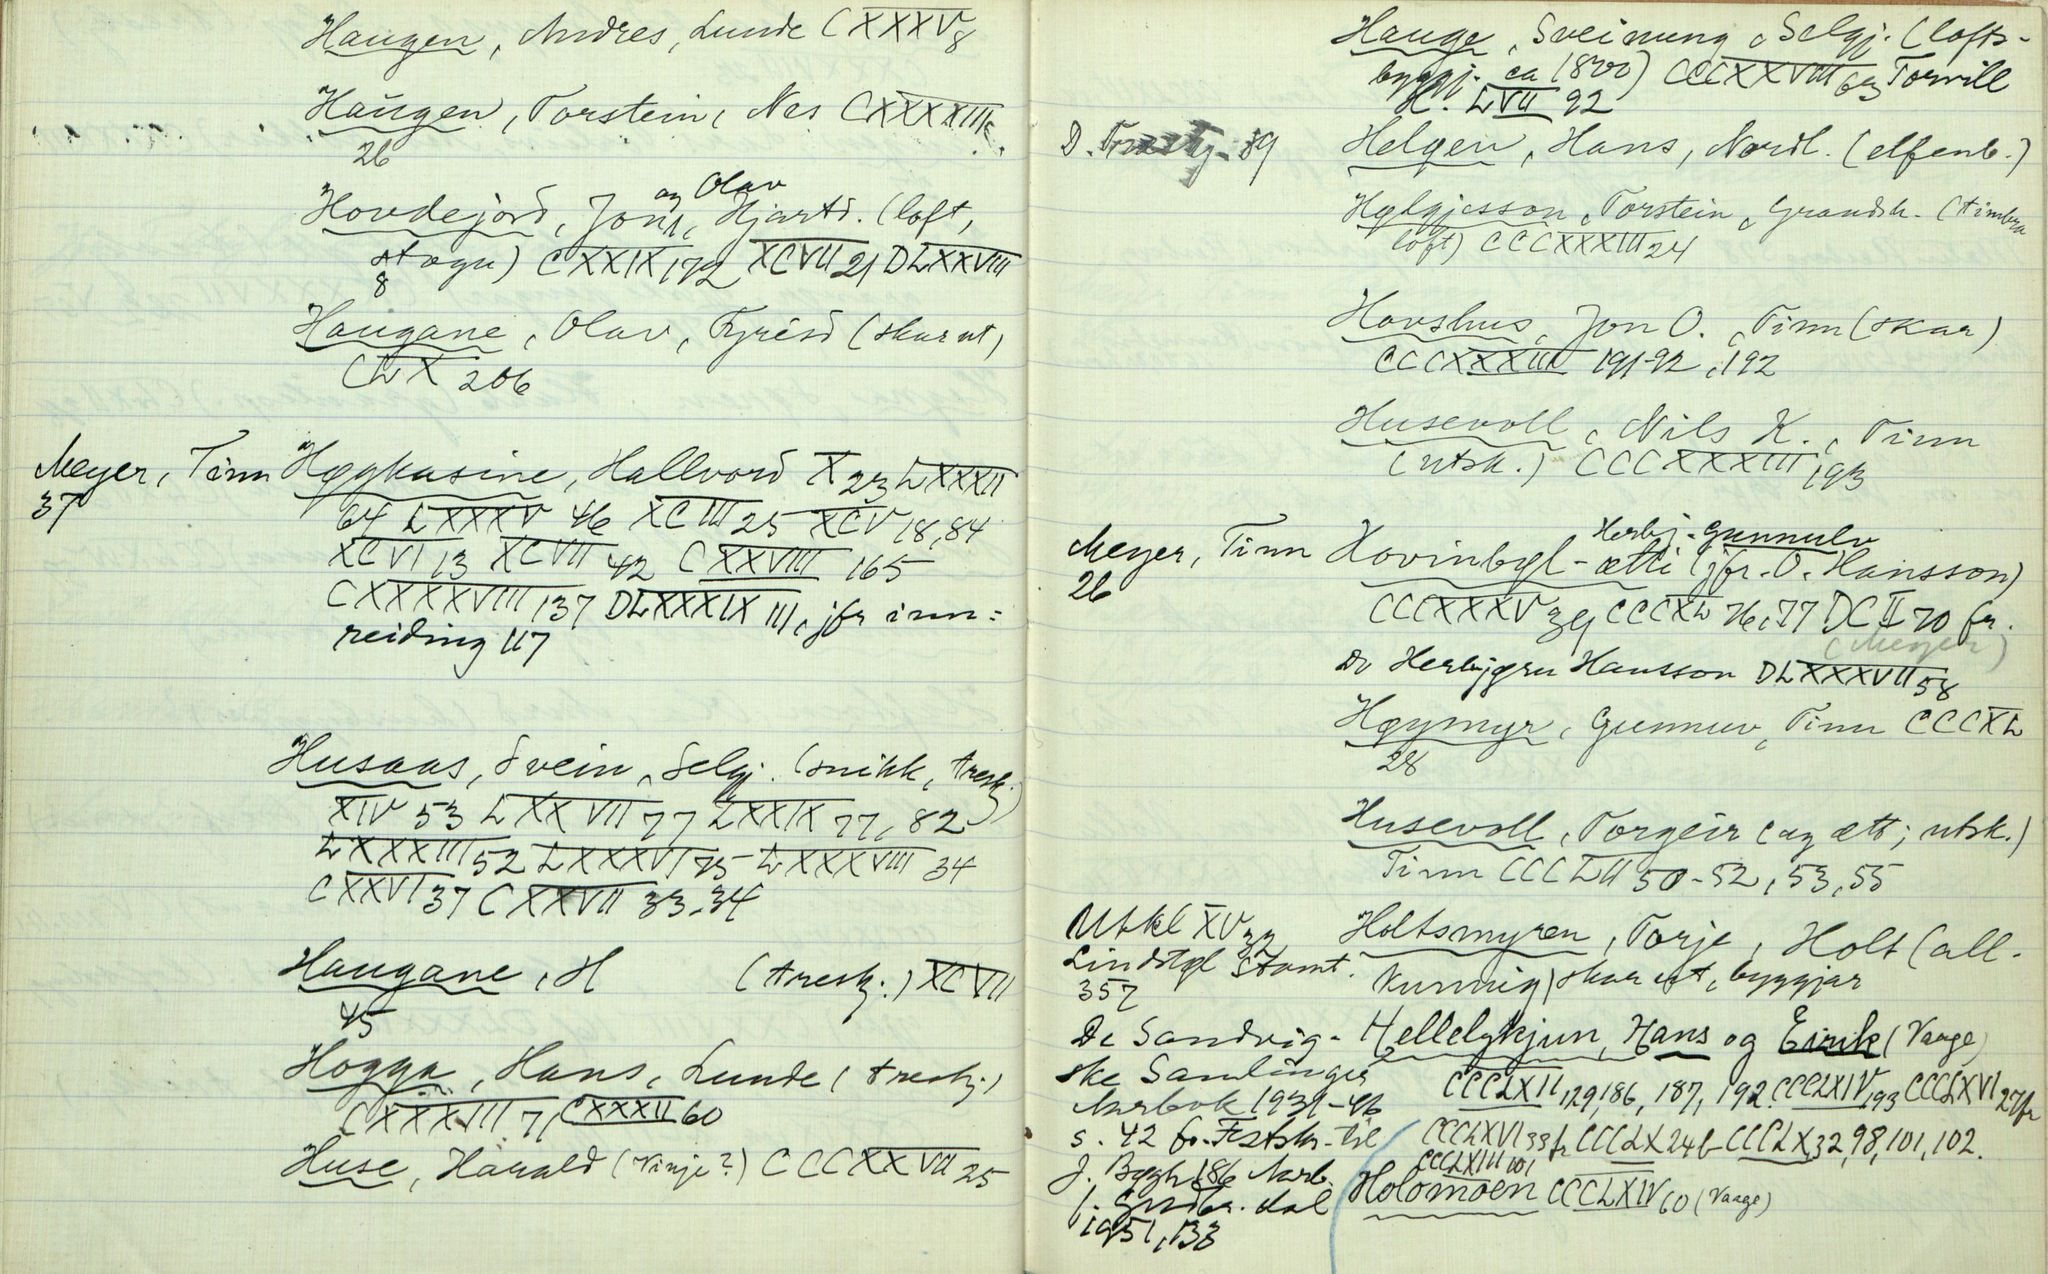 Haugen, Andres, Lunde CXXXV 8
Haugen, Torstein, Nes CXXXXIII
26
og Olav
Hovdejord, Jon, Hjartd. (loft,
stogu) CXXIX 172 XCVII 21 DLXXVIII
8
Haugane, Olav, Fyresd (skar ut)
CLX 206
Meyer, Tinn Hægkasine, Hallvord X 23 LXXXII
37
64 LXXXV 46 XCIII 25 XCV 18,84
XCVI 13 XCVII 42 CXXVIII 165
CXXXXVIII 137 DLXXXIX 111, jfr inn=
reiding 117
Husaas, Svein, Selgj. (snikk, tresk.)
XIV 53 LXXVII 77 LXXIX 77, 82
LXXXIII 52 LXXXVI 75 LXXXVIII 34
CXXVI 37 CXXVII 33-34
Haugane, H (tresk.) XCVII
45
Hogga, Hans, Lunde (treskj.)
CXXXVIII 71 CXXXII 60
Huse, Harald (Vinje?) CCCXXVII 25
Hauge, Sveinung, Selgj. (lofts-
byggj. ca 1800) CCCXXVIII 63 Torvill
H. LVII 92
D. 89 Helgen, Hans, Nordl. (elfenb.)
Helgjesson, Torstein, Gransh. (timbra
loft) CCCXXXIII 24
Hovshus, Jon O., Tinn (skar)
CCCXXXIII 191-92, 192
Husevoll, Nils K., Tinn
(utsk.) CCCXXXIII 193
Herbj. Gunnulv
Meyer, Tinn Hovinbygl-ætti (jfr. O. Hansson)
26
CCCXXXV 39 CCCXL 76, 77 DCII 70 fr.
(Meyer)
Dv Herbjørn Hansson DLXXXVII 58
Høymyr, Gunnuv, Tinn CCCXL
28
Husevoll, Torgeir (og ætt; utsk.)
Tinn CCCLII 50-52, 53, 55
Utkl XV 32 Holtsmyren, Torje, Holt (all-
Lindstøl Stamt. kunnig) skar ut, byggjar
357
De Sandvig- Hellelykjun, Hans og Eirik (Vaage)
ske Samlinger CCCLXII 129, 186, 187, 192. CCCLXIV 193 CCCLXVI 27fr
Aarbok 1931-46
s. 42 fr. Festskr. til CCCLXVI 33 fr CCCLX 24 fr CCCLX, 32, 98, 101, 102.
CCCLXIII 101
J. Bøgh 186 Aarb. Holomoen CCCLXIV 60 (Vaage)
f. Gudbr. dal
1951, 133